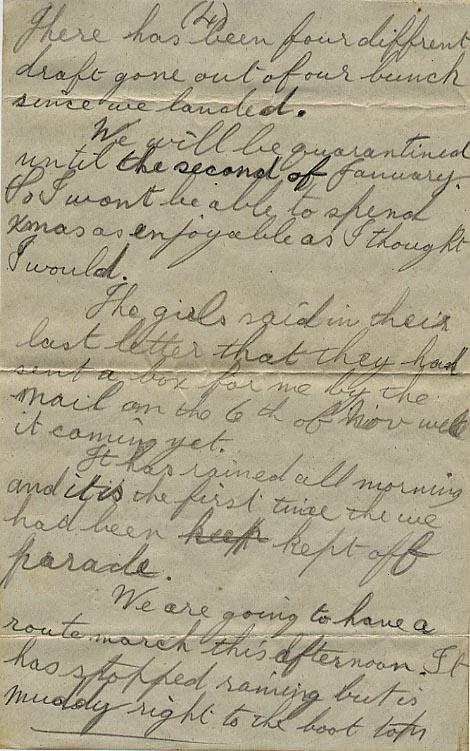 (4)
There has been four diffrent
draft gone out of our bunch
since we landed.
We will be quarantined
until the second of January.
So I wont be able to spend
xmas as enjoyable as I thought
I would.
The girls said in their
last letter that they had
sent a box for me by the
mail on the 6 th of Nov well
it coming yet.
It has rained all morning
and it is the first time the we
had been keep kept off
parade.
We are going to have a
route march this afternoon. It
has stopped raining but is
muddy right to the boot tops